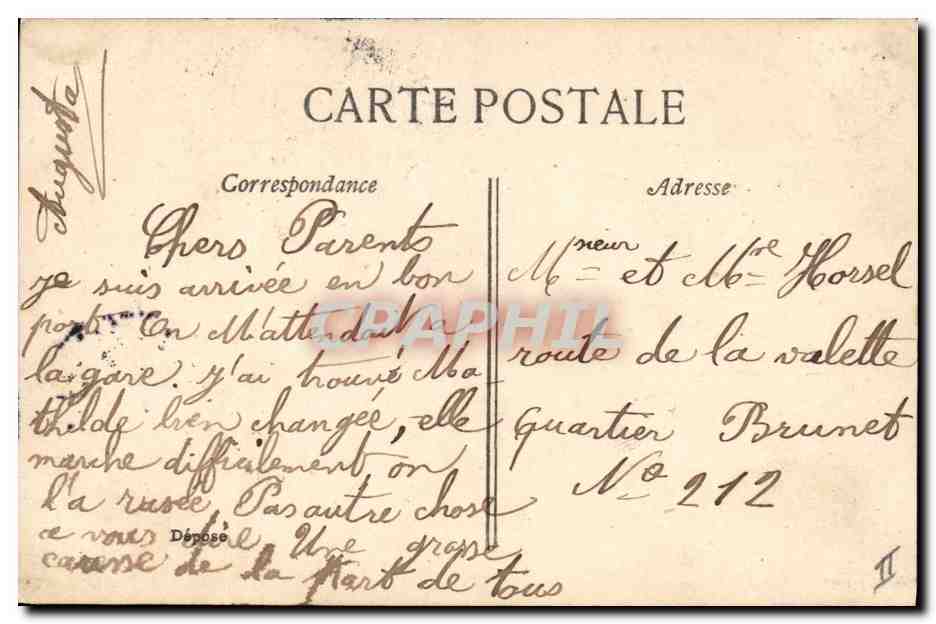 CARTE POSTALE
Correspondance
Adresse
Augusta
Chers Parents
je suis arrivée en bon
port. On M'attendait a
la gare. J'ai trouvé Ma-
thilde bien changée, elle
marche difficilement, on
l'a rusée Pas autre chose
a vous dire Une grosse
caresse de la Part de tous
Déposé
Mnieur et Mme Horsel
route de la valette
quartier Brunet
No 212
II
CPAPHIL